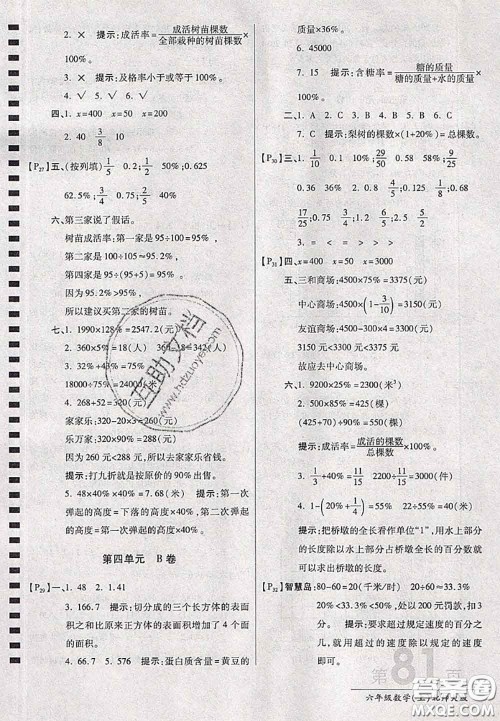 2. × 提示:成活率=成活树苗棵数/全部栽种的树苗棵数×
100%。
3. × 提示:及格率小于或等于100%。
4. √ 5. √ 6. √
四、1. x=400 x=50 x=200
2. 40 3/8 10
【P27】五、(按列填) 1/5 0.2; 1/2 50%; 0.625
62.5%; 3/4 75%; 3/10 0.3
六、第三家说了假话。
树苗成活率:第一家是95÷100=95%。
第二家是92÷100=92%。
第三家是95÷(95+5)=95%。
因为95.2%>95%,
所以建议买第二家的树苗。
七、1. 1990×128%=2547.2(元)
2. 360×5%=18(人)
3. 32%+43%=75%
18000÷75%=24000(
4. 268+52=320(元)
家家乐:320-20×3=260(元)
乐万家:320×90%-6=282(元)
因为260元<282元,所以去家家乐省钱。
提示:打九折就是按原价的90%出售。
5. 48×40%×40%=7.68(米) 提示:第一次
弹起的高度=下落的高度×40%,第二次弹起
的高度=第一次弹起的高度×40%。
第四单元 B卷
【P29】一、1. 48 2. 1.41
3. 166.7 提示:切分成的三个长方体的表面
积之和比原来正方体的表面积增加了4个面
的面积。
4. 166.7 5. 576 提示:蛋白质含量=黄豆的
质量×36%。
6. 45000
7. 15 提示:含糖率=糖的质量/糖的质量+水的质量×
100%。
二、1. C 2. C 3. B 4. C 5. B 6. A
7. C 提示:梨树的棵数×(1+20%)=总棵数。
【P30】三、1. 1/10 0.1 10%; 29/50 0.58 58%; 3/1
0.3 30%
2. 17/25; 0.75 3/4; 0.35 35%; 0.18 18%
3. = < = > < >
【P31】四、x=400 x=50 x=3000
五、三和商场:4500×75%=3375(元)
中心商场:4500×(1-3/10)=3150(元)
友谊商场:4500×3/4=3375(元)
3150元<3375元
故应去中心商场。
六、1. 9200×25%=2300(m³)
2. 500×(1-10%)=450(棵)
450÷90%=500(棵)
提示:成活率=成活的棵数/总棵数×100%。
3. 1/3+40%=11/15 2200÷11/15=3000(件)
4. 1-(20%+1/4)=55% 22÷55%=40(米)
提示:
把桥墩的全长看作单位“1”,用水上部分
的长度除以水上部分占全长的百分数就可以
求出桥墩的全长。
【P32】智慧岛:80-60=20(千米/时) 20÷60≈33.3%
20%<33.3%<50%,所以应处以200元罚款,扣3
分。 提示:要求超过规定速度的百分
数,就用超过的速度除以规定的速度。
第81页
六年级数学(上)北师大版